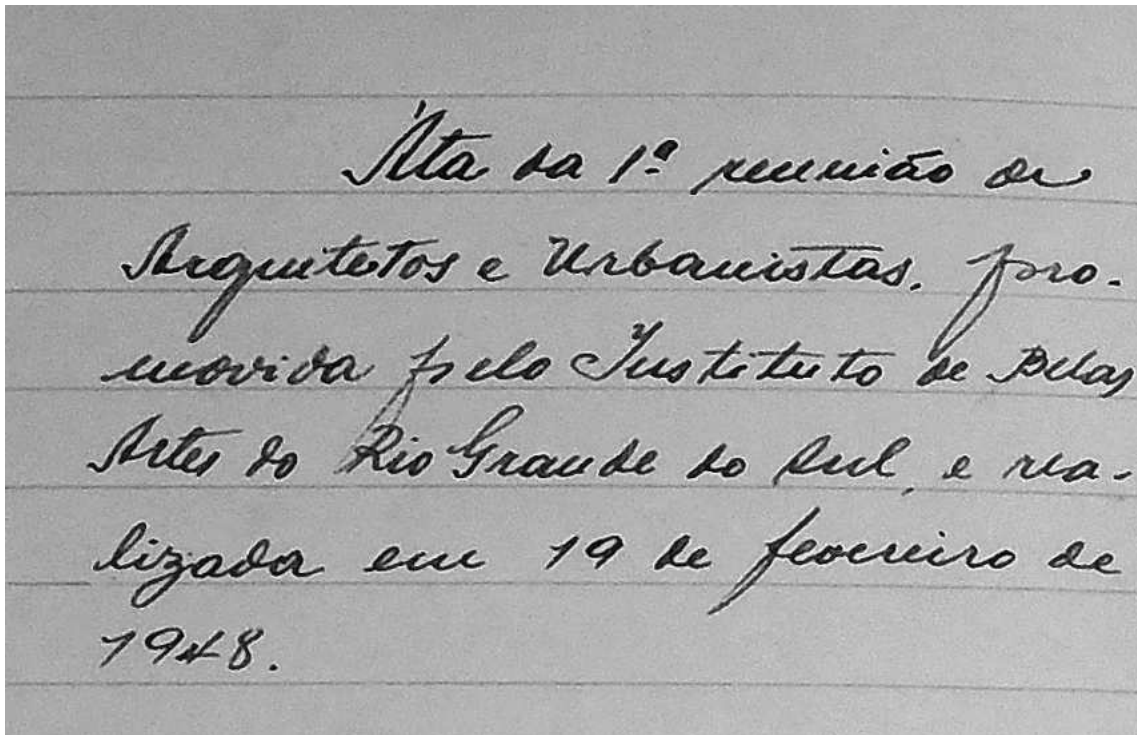 Áta da 1ª reunião de
Arquitetos e Urbanistas, pro-
movida pelo Instituto de Belas
Artes do Rio Grande do Sul, e rea-
lizada em 19 de fevereiro de
1948.